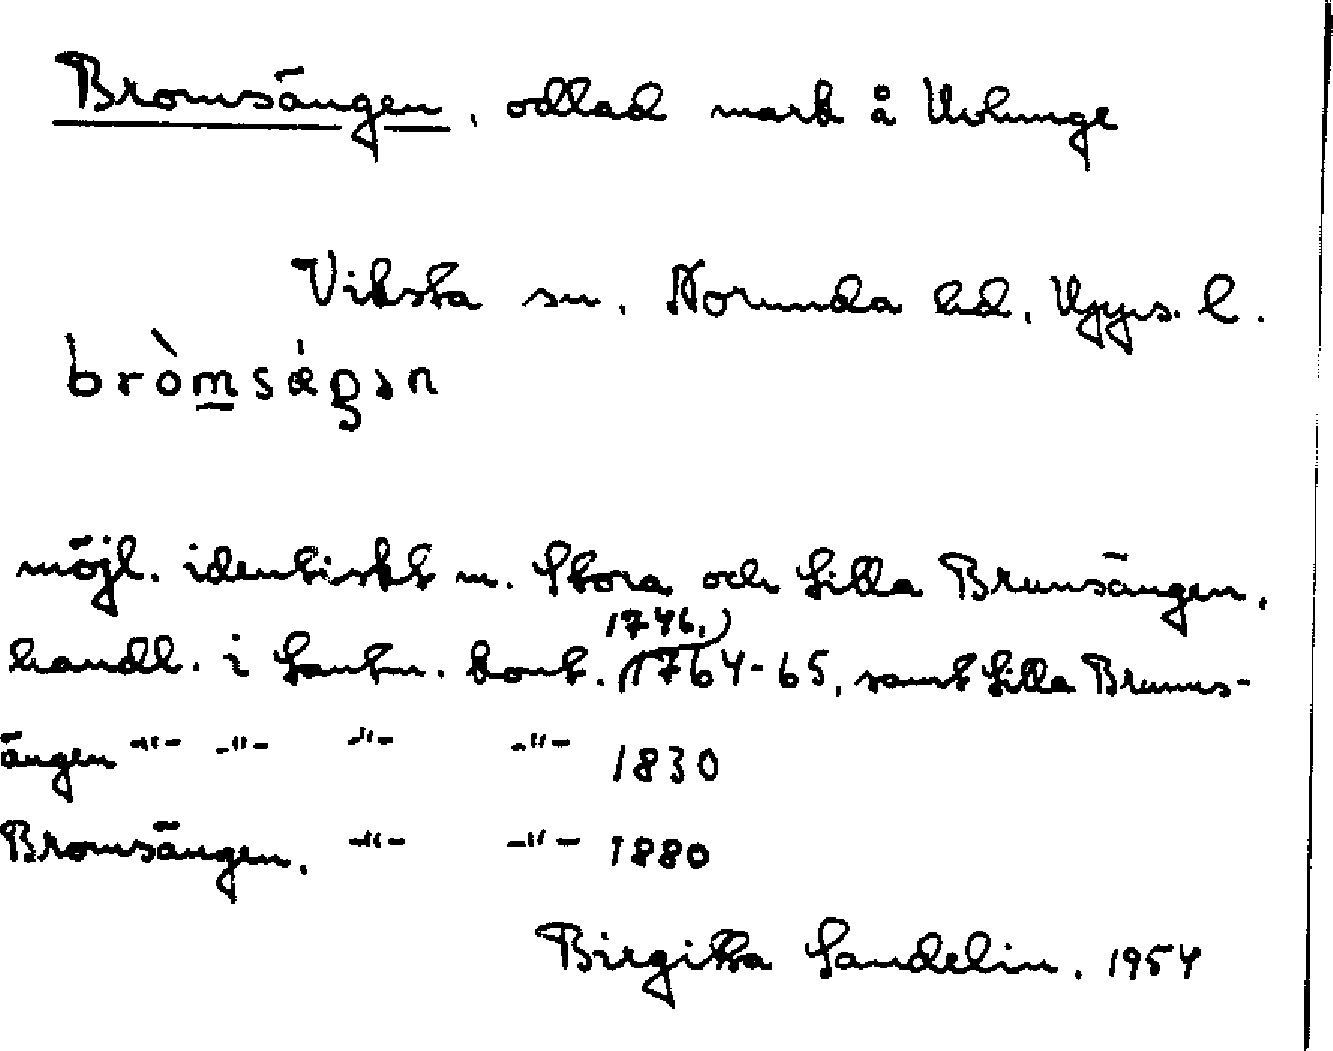 Bromsängen, odlad mark å Uvlunge
Viksta sn. Norunda hd. Upps. l.
bròmsǽŋən
möjl. identiskt m. Stora och Lilla Brunsängen,
1746,
handl. i Lantm. kont. 1764-65, samt Lilla Brunns-
ängen -"- -"- -"- -"- 1830
Bromsängen, -"- -"- 1880
Birgitta Sandelin. 1954